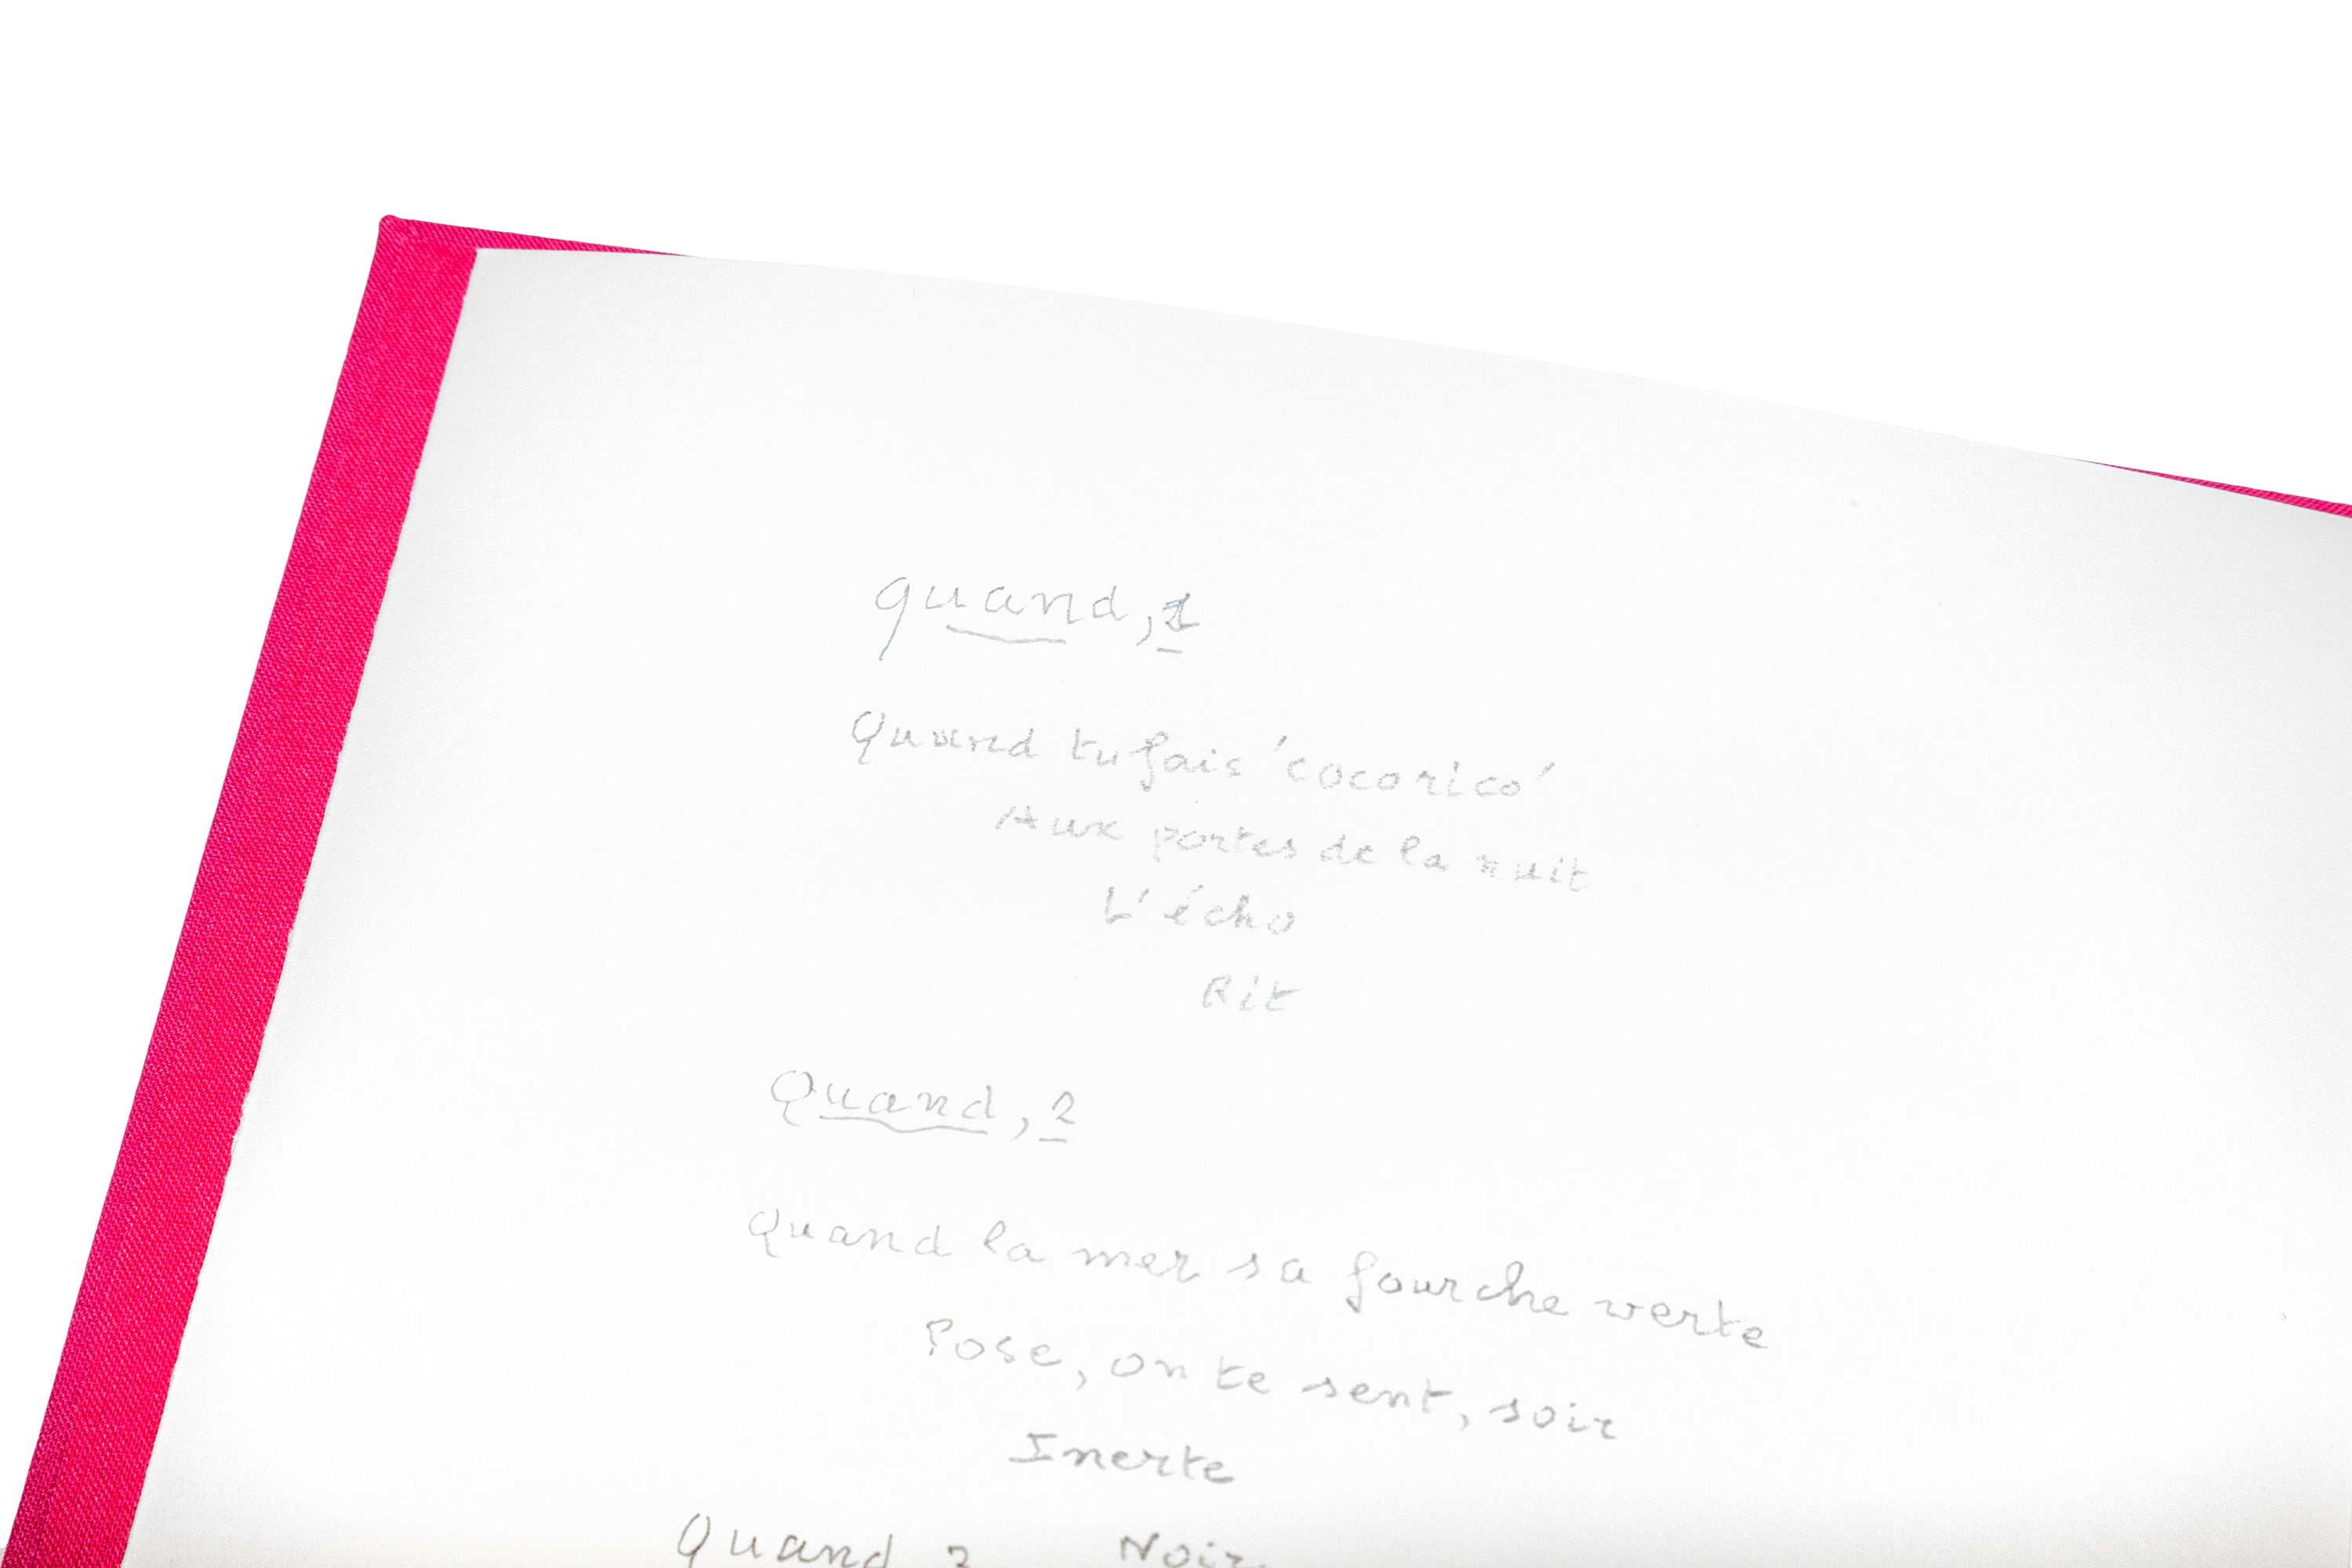 quand, 1
Quand tu fais 'cocorico'
Aux portes de la nuit
L'écho
Rit
Quand, 2
Quand la mer sa fourche verte
Pose, on te sent, soir
Inerte
Quand 3 Noir